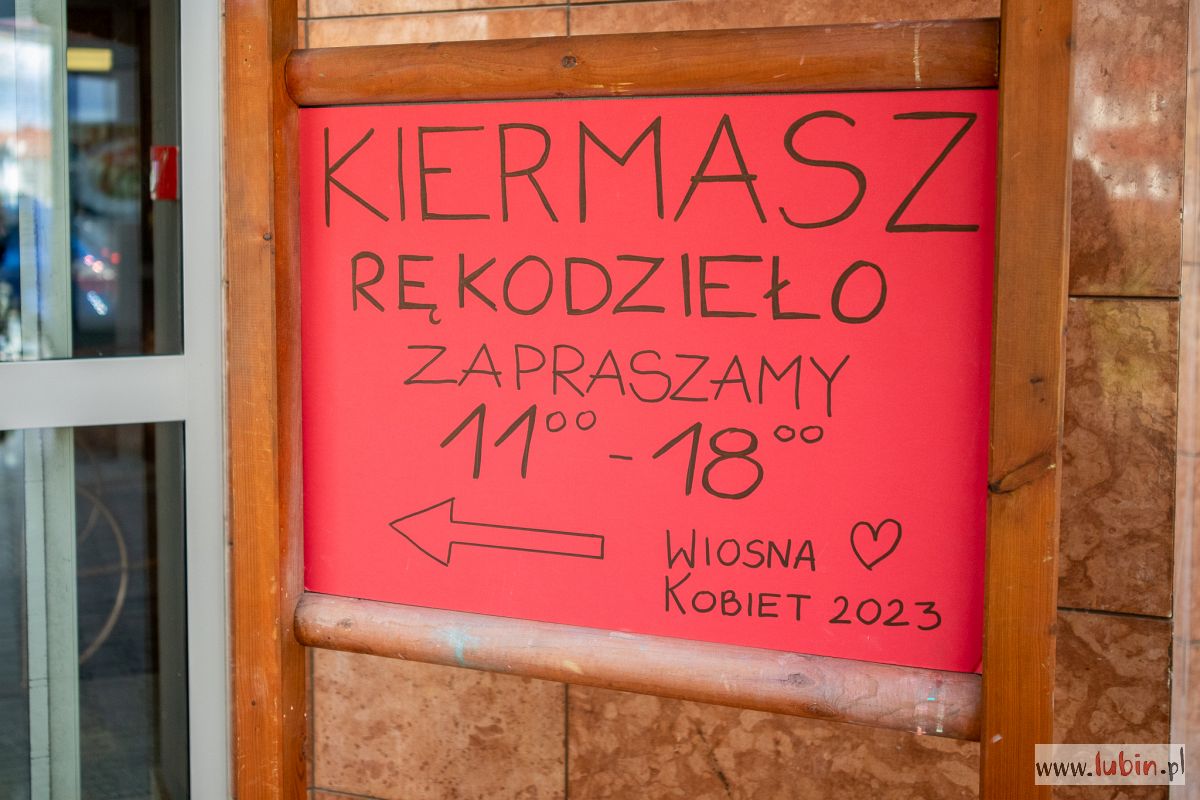 KIERMASZ
RĘKODZIEŁO
ZAPRASZAMY
11⁰⁰ - 18⁰⁰
WIOSNA ♡
KOBIET 2023
www.lubin.pl